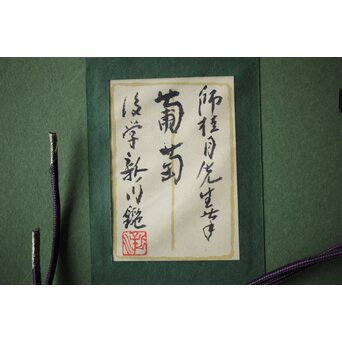 師桂月先生筆
葡萄
後学新川鑑